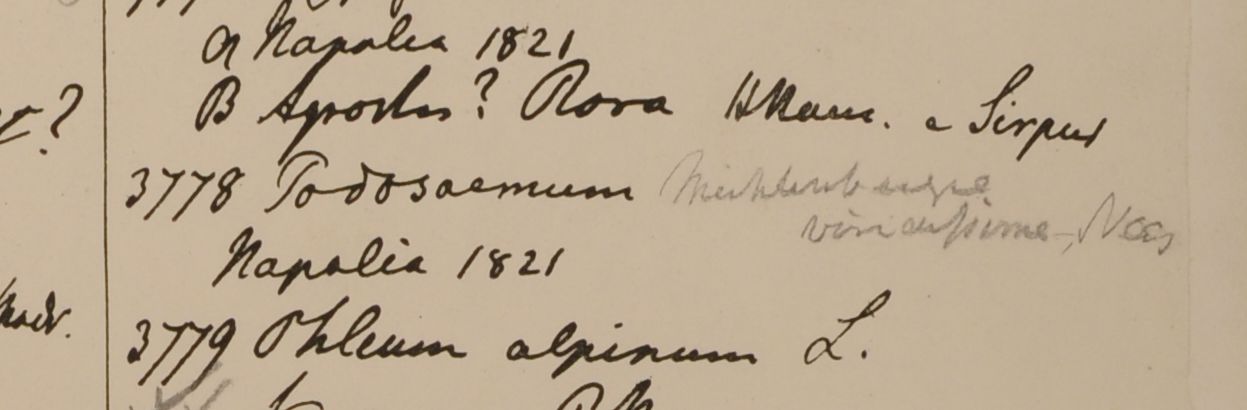 a Napalia 1821
B Agrostis? Roxa HHam. e Sirpur
3778 Podosaemum Muhlenbergia
viridissima, Nees
Napalia 1821
3779 Phleum alpinum L.